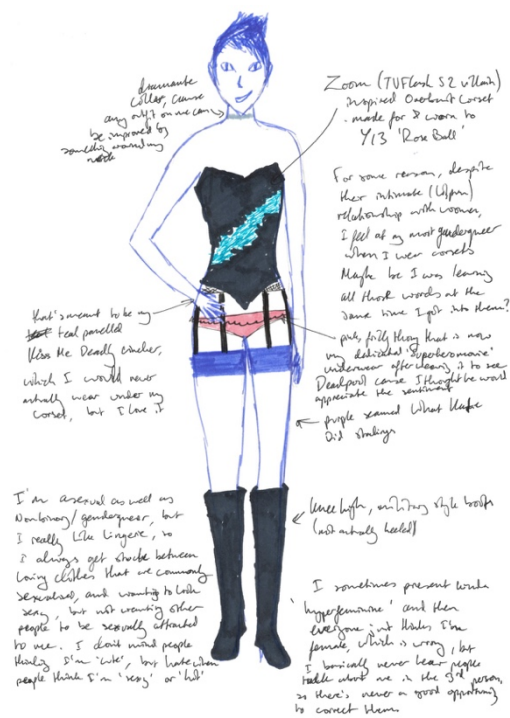 diamante
collar, cause
any outfit on me can
be improved by
something around my
neck
Zoom (TV Flash S2 villain)
inspired Overbust Corset
made for & worn to
Y13 'Rose Ball'
For some reason, despite
their intimate
relationship with women,
I feel at my most genderqueer
when I wear corsets
Maybe be I was learning
all those words at the
same time I got into them?
that's meant to be my
teal panelled
Kiss Me Deadly cincher,
which I would never
actually wear under my
corset, but I love it
pink, frilly thong that is now
my dedicated 'superhero movie'
underwear after wearing it to see
Deadpool cause I thought he would
appreciate the sentiment
purple seamed What Katie
Did stockings
knee high, military style boots
(not actually heeled)
I'm asexual as well as
Nonbinary/genderqueer, but
I really like lingerie, so
I always get stuck between
loving clothes that are commonly
sexualised, and wanting to look
sexy, but not wanting other
people to be sexually attracted
to me. I don't mind people
thinking I'm 'cute', but hate when
people think I'm 'sexy' or 'hot'
I sometimes present kinda
'hyperfeminine' and then
everyone just thinks I'm
female, which is wrong, but
I basically never hear people
talk about me in the 3rd person,
so there's never a good opportunity
to correct them.